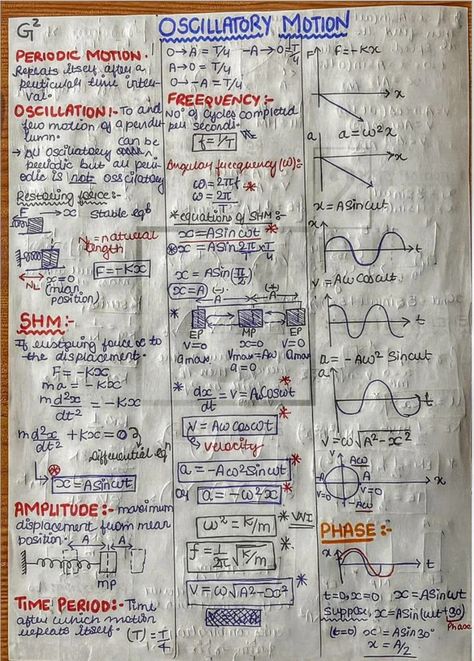 G²
OSCILLATORY MOTION
PERIODIC MOTION
Repeats itself after a
particular time inter-
val.
OSCILLATION:- To and
fro motion of a pendu
lum.
→ All oscillatory can be
periodic but all peri-
odic is not oscillatory
Restoring force:-
F → x stable eqb
N = natural
length
NL x=0
(mean
position)
F=-Kx
SHM:-
If restoring force ∝ to
the displacement.
F = -Kx
ma = -Kx
md²x/dt² = -Kx
md²x/dt² + Kx = 0
differential eqn
* x = ASinωt
AMPLITUDE:- maximum
displacement from mean
position.
A A
mp
TIME PERIOD:- Time
after which motion
repeats itself. (T) = T/4
O→A = T/4 -A→O = T/4
A→O = T/4
O→-A = T/4
FREEQUENCY:-
No of cycles completed
per second:-
f = 1/T
Angular frequency (ω):-
ω = 2πf *
ω = 2π/T
*equations of SHM:-
x = ASinωt *
* x = ASin 2π/T × T/4
x = ASin(π/2)
x = A (-) (+)
A A
* EP MP EP
v=0 x=0 v=0
amax Vmax = Aω amax
a=0
* dx/dt = v = A Cosωt *
v = Aω cosωt *
→ velocity
a = -Aω²Sinωt *
Or a = -ω²x *
ω² = K/m * VVI
f = 1/2π √K/m *
V = ω√A²-x² *
F f = -Kx
x
a a = ω²x
x
x = ASinωt
t
V = Aω Cosωt
t
a = -Aω² Sinωt
t
V = ω√A²-x²
Aω
V=0 V=0
x
Aω
PHASE:-
x
t
t=0, x=0 x = ASinωt
Suppose x = ASin(ωt+30)
Phase
(t=0) x = ASin30°
x = A/2